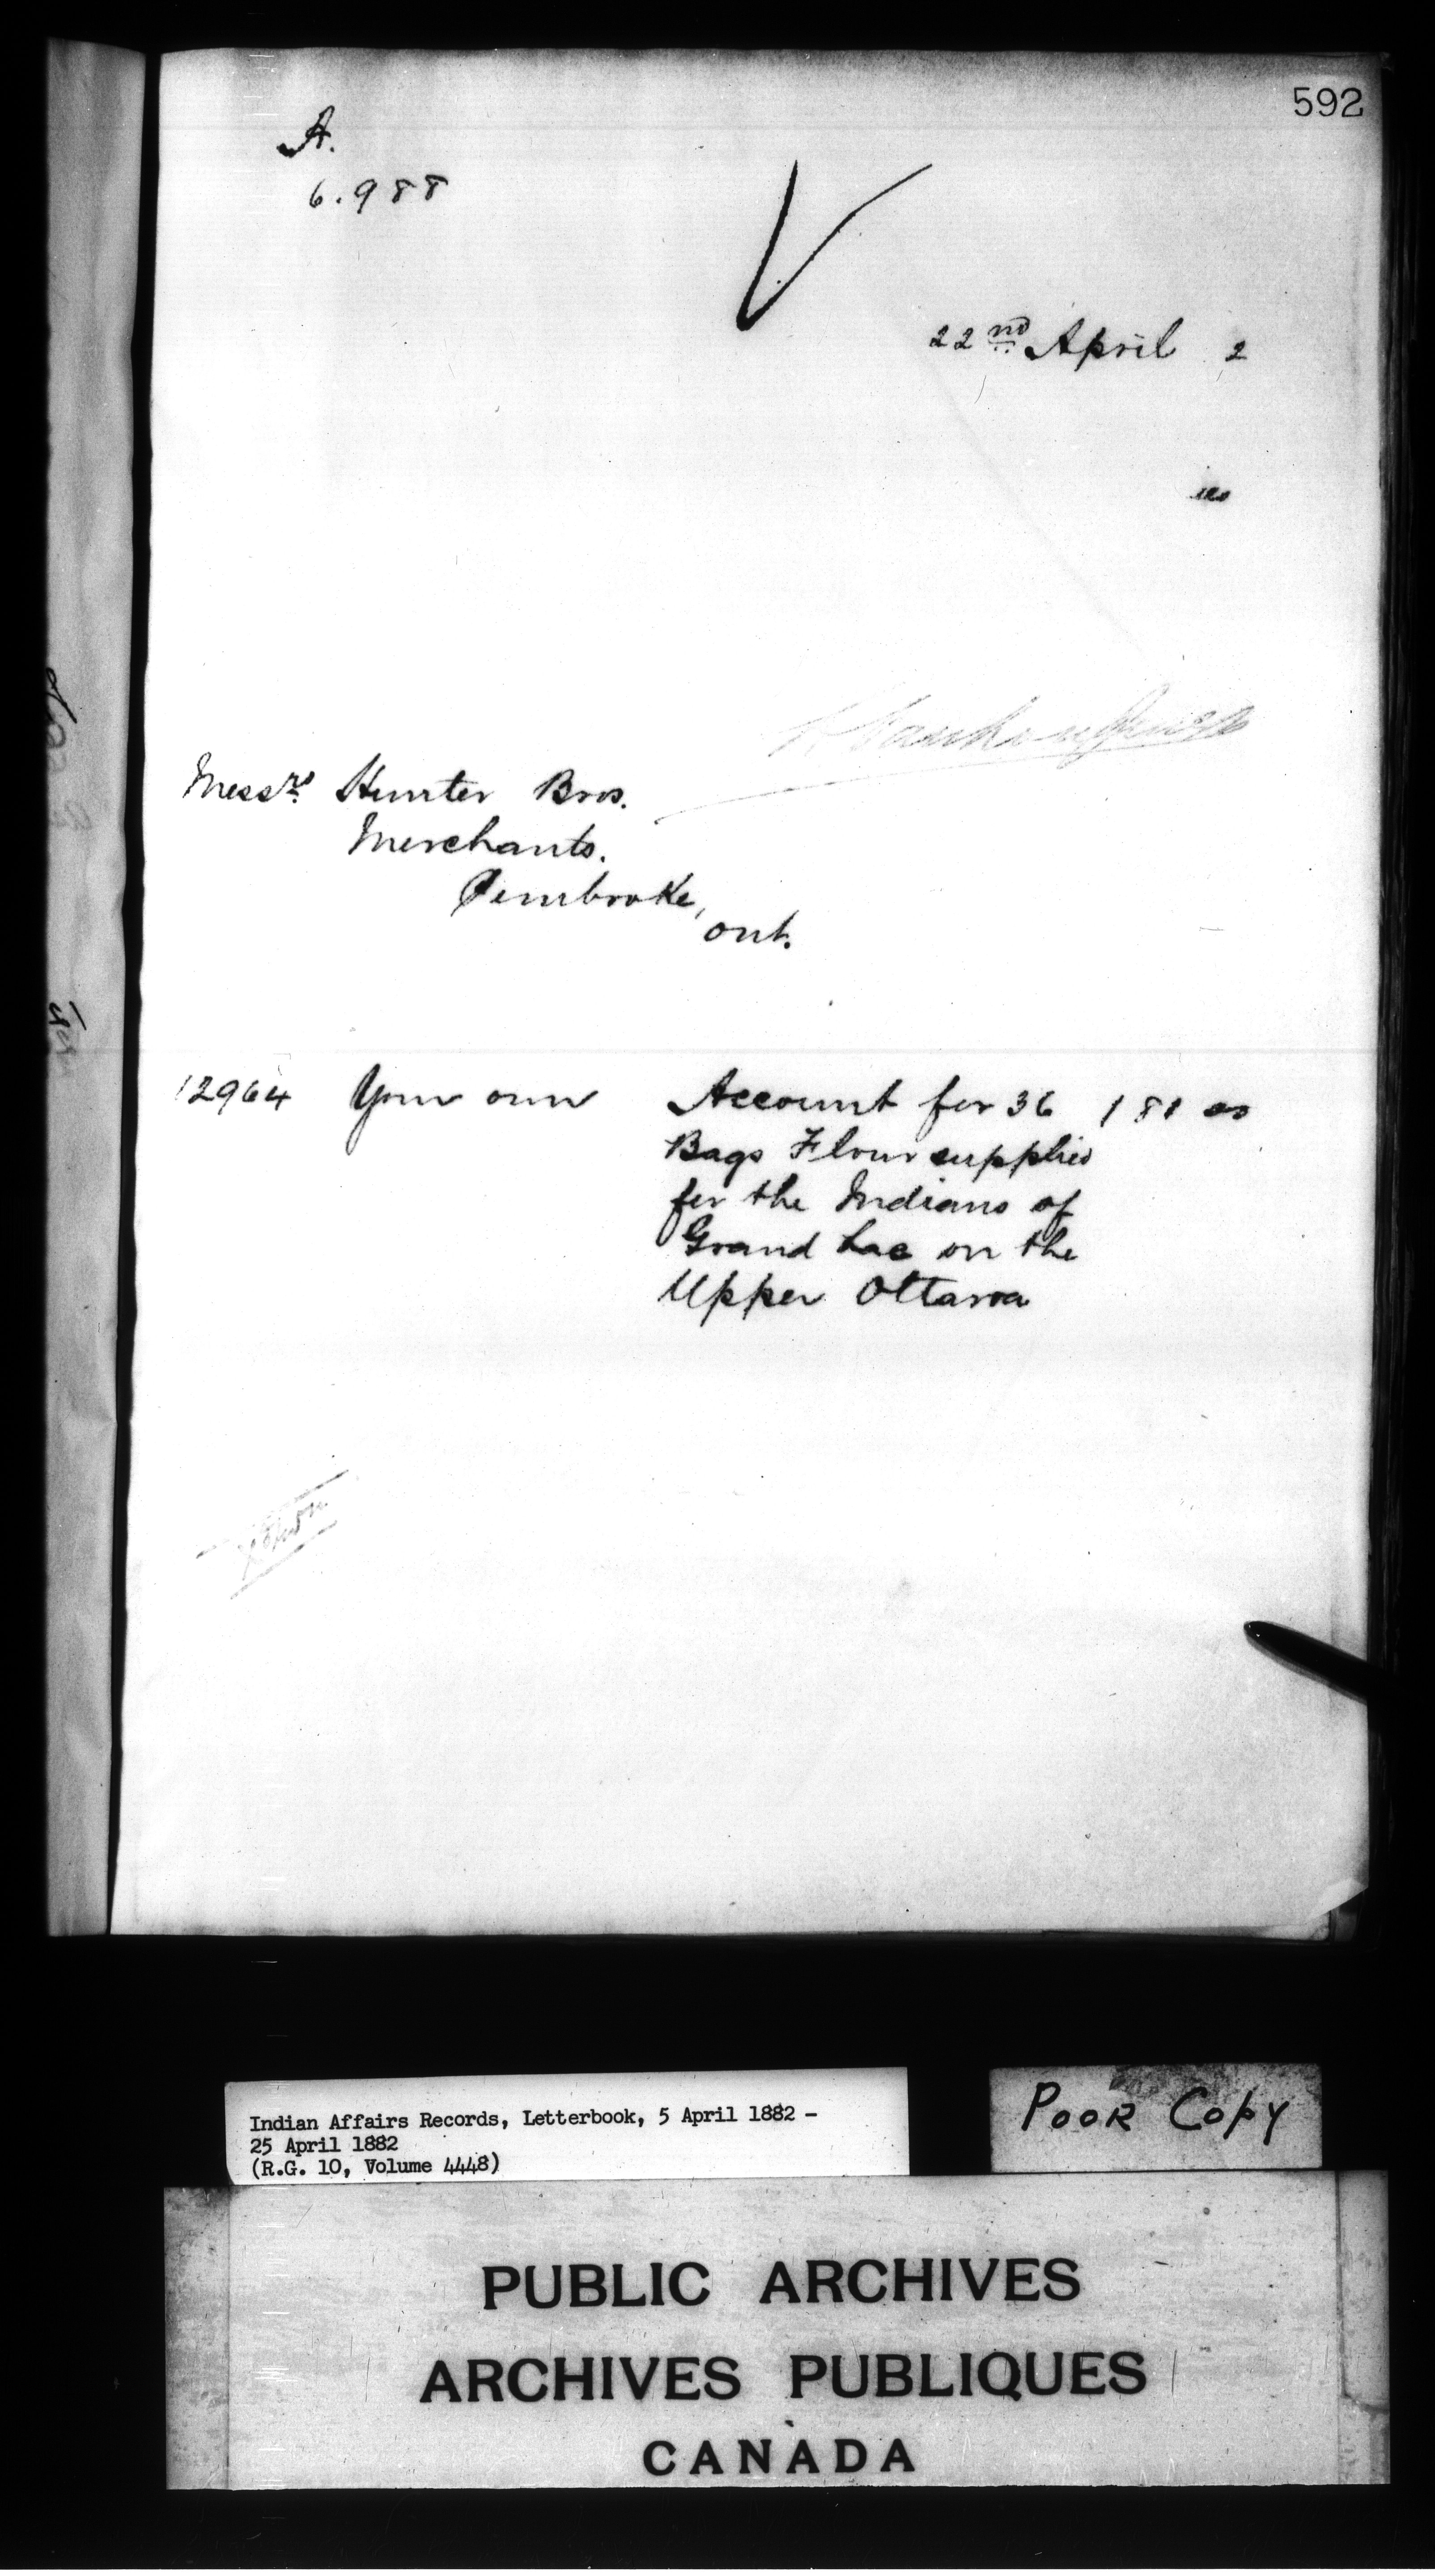 592
A.
6.988
22nd April 2
ies
Messrs. Hunter Bros.
Merchants.
Pembroke,
Ont.
12964 Your own Account for 36 181 00
Bags Flour supplied
for the Indians of
Grand Lac on the
Upper Ottawa
Indian Affairs Records, Letterbook, 5 April 1882 -
25 April 1882
(R.G. 10, Volume 4448)
POOR COPY
PUBLIC ARCHIVES
ARCHIVES PUBLIQUES
CANADA